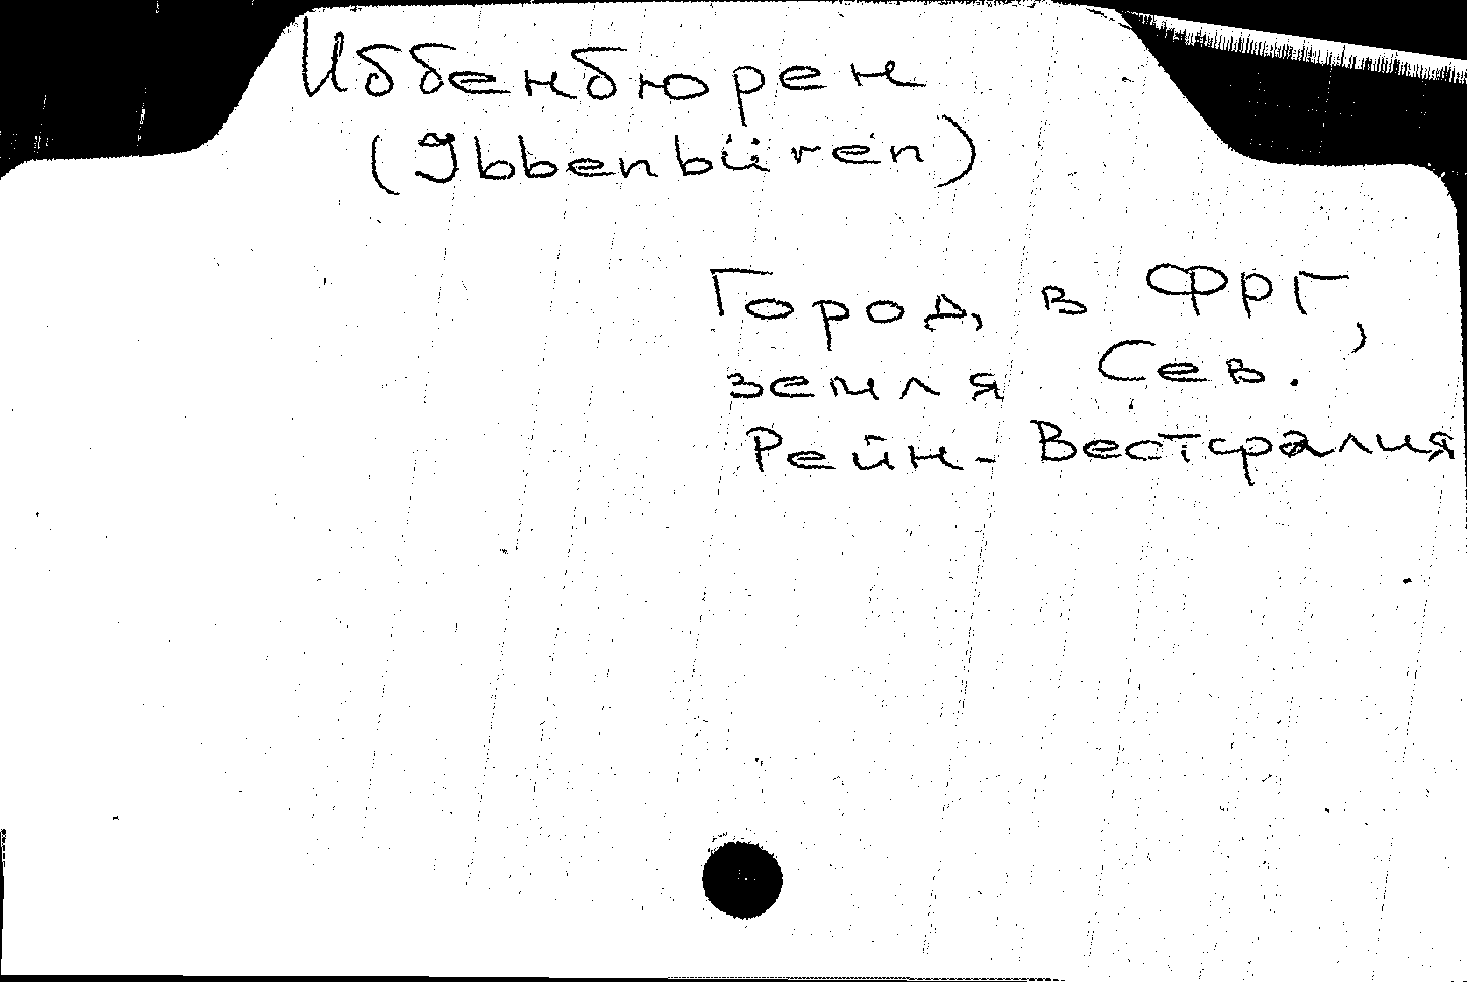 Иббенбюрен
(Ibbenbüren)
Город, в ФРГ,
земля Сев.
Рейн-Вестфалия